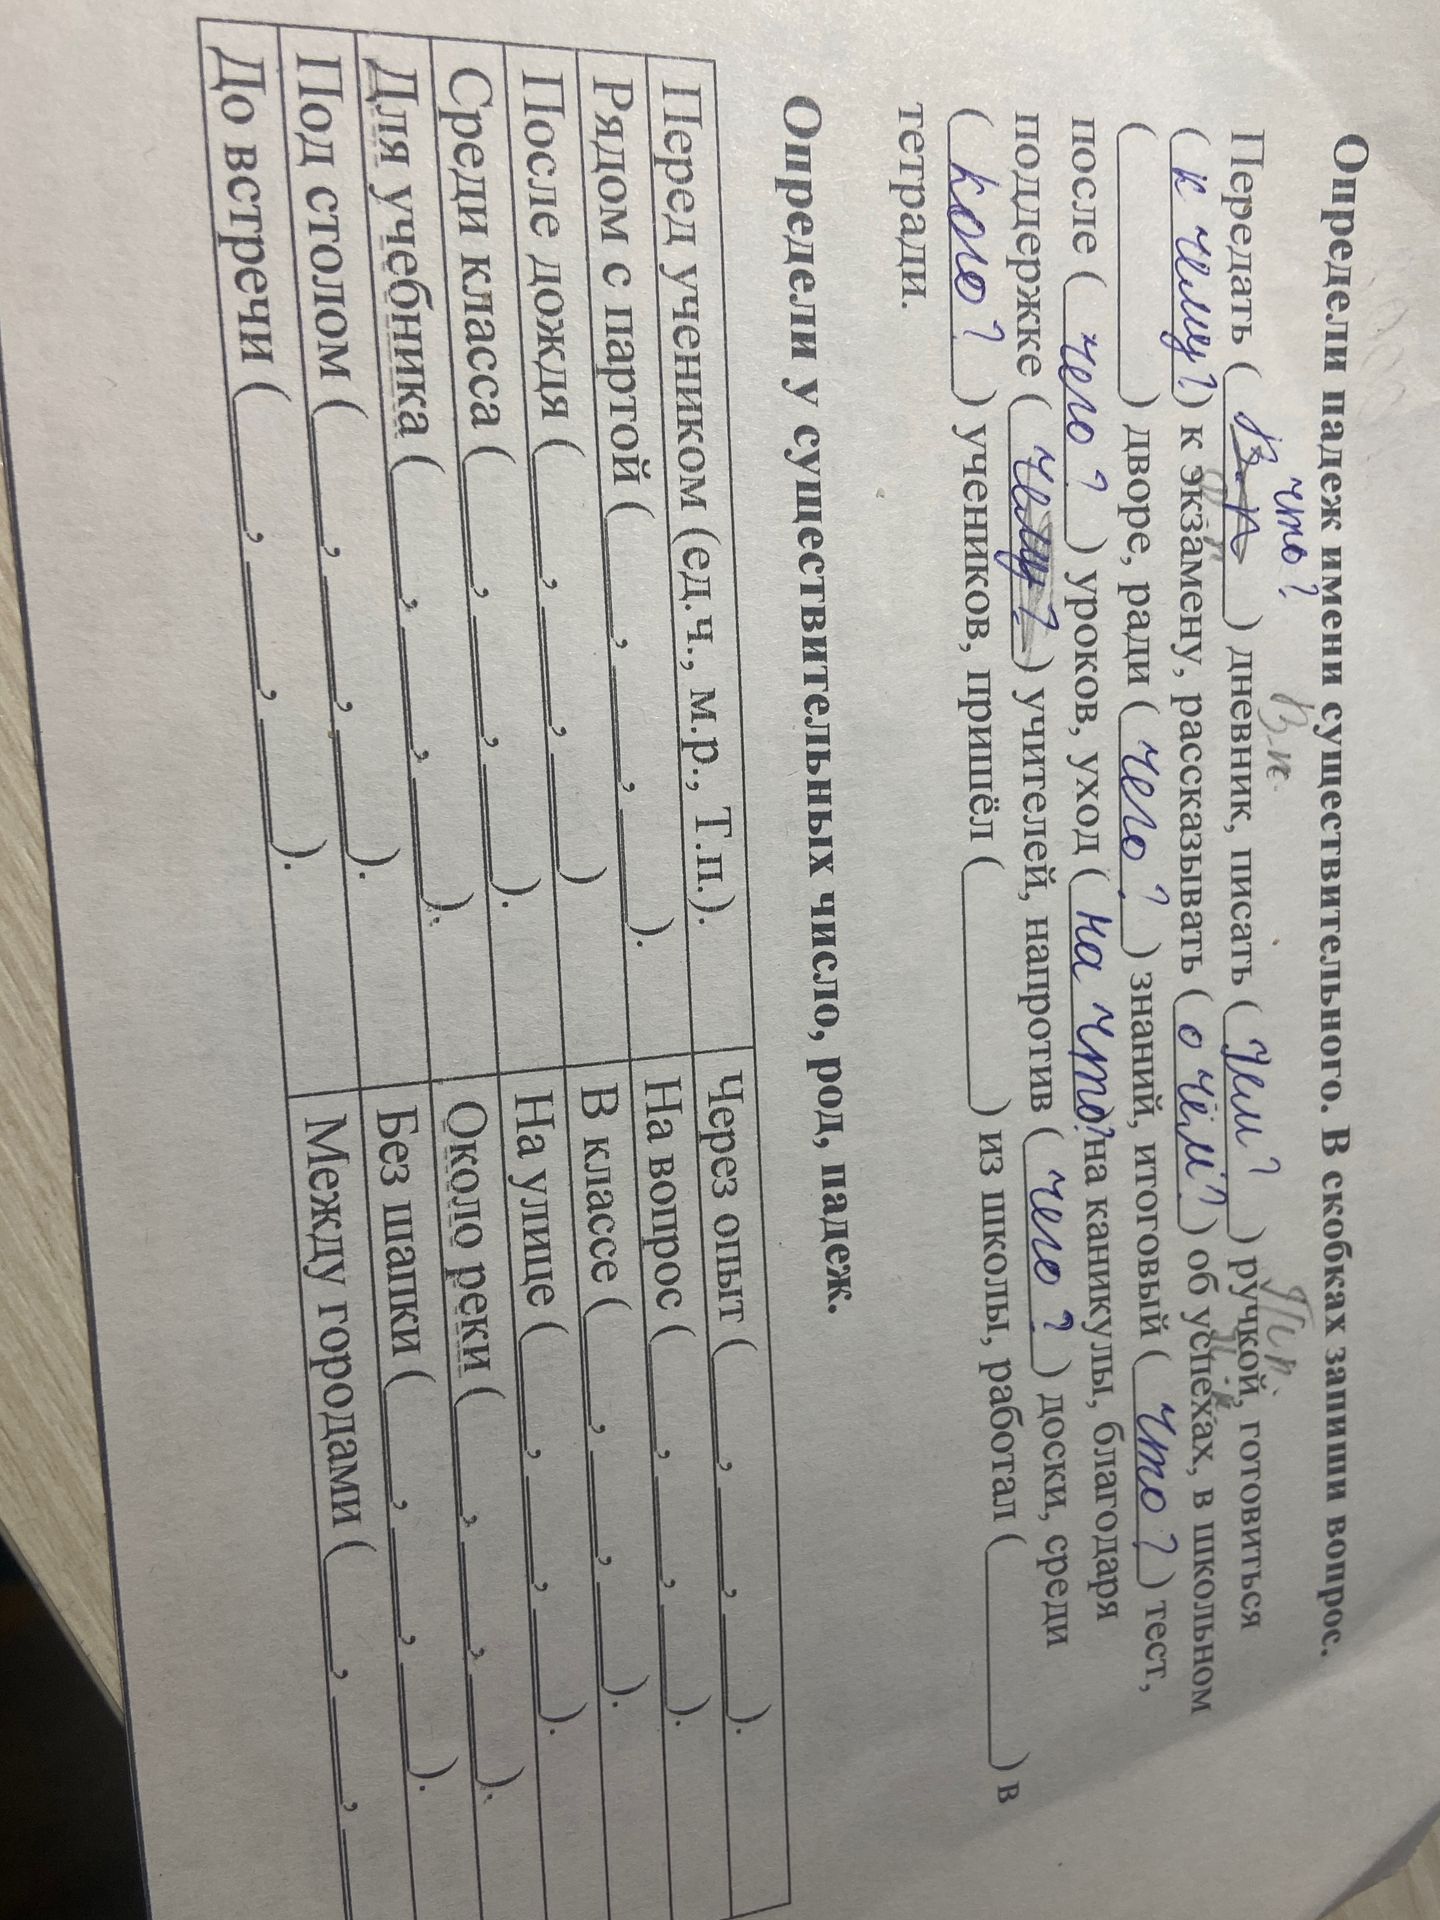 Определи падеж имени существительного. В скобках запиши вопрос.
что? В.п Т.п.
Передать ( В. п ) дневник, писать ( чем? ) ручкой, готовиться
( к чему? ) к экзамену, рассказывать ( о чём? ) об успехах, в школьном
(__________) дворе, ради ( чего? ) знаний, итоговый ( что? ) тест,
после ( чего? ) уроков, уход ( на что? на каникулы, благодаря
поддержке ( чему? ) учителей, напротив ( чего? ) доски, среди
( кого? ) учеников, пришёл (__________) из школы, работал (__________) в
тетради.
Определи у существительных число, род, падеж.
Перед учеником (ед.ч., м.р., Т.п.). Через опыт (____, ____, ____).
Рядом с партой (____, ____, ____). На вопрос (____, ____, ____).
После дождя (____, ____, ____) В классе (____, ____, ____).
Среди класса (____, ____, ____). На улице (____, ____, ____).
Для учебника (____, ____, ____). Около реки (____, ____, ____).
Под столом (____, ____, ____). Без шапки (____, ____, ____).
До встречи (____, ____, ____). Между городами (____, ____,